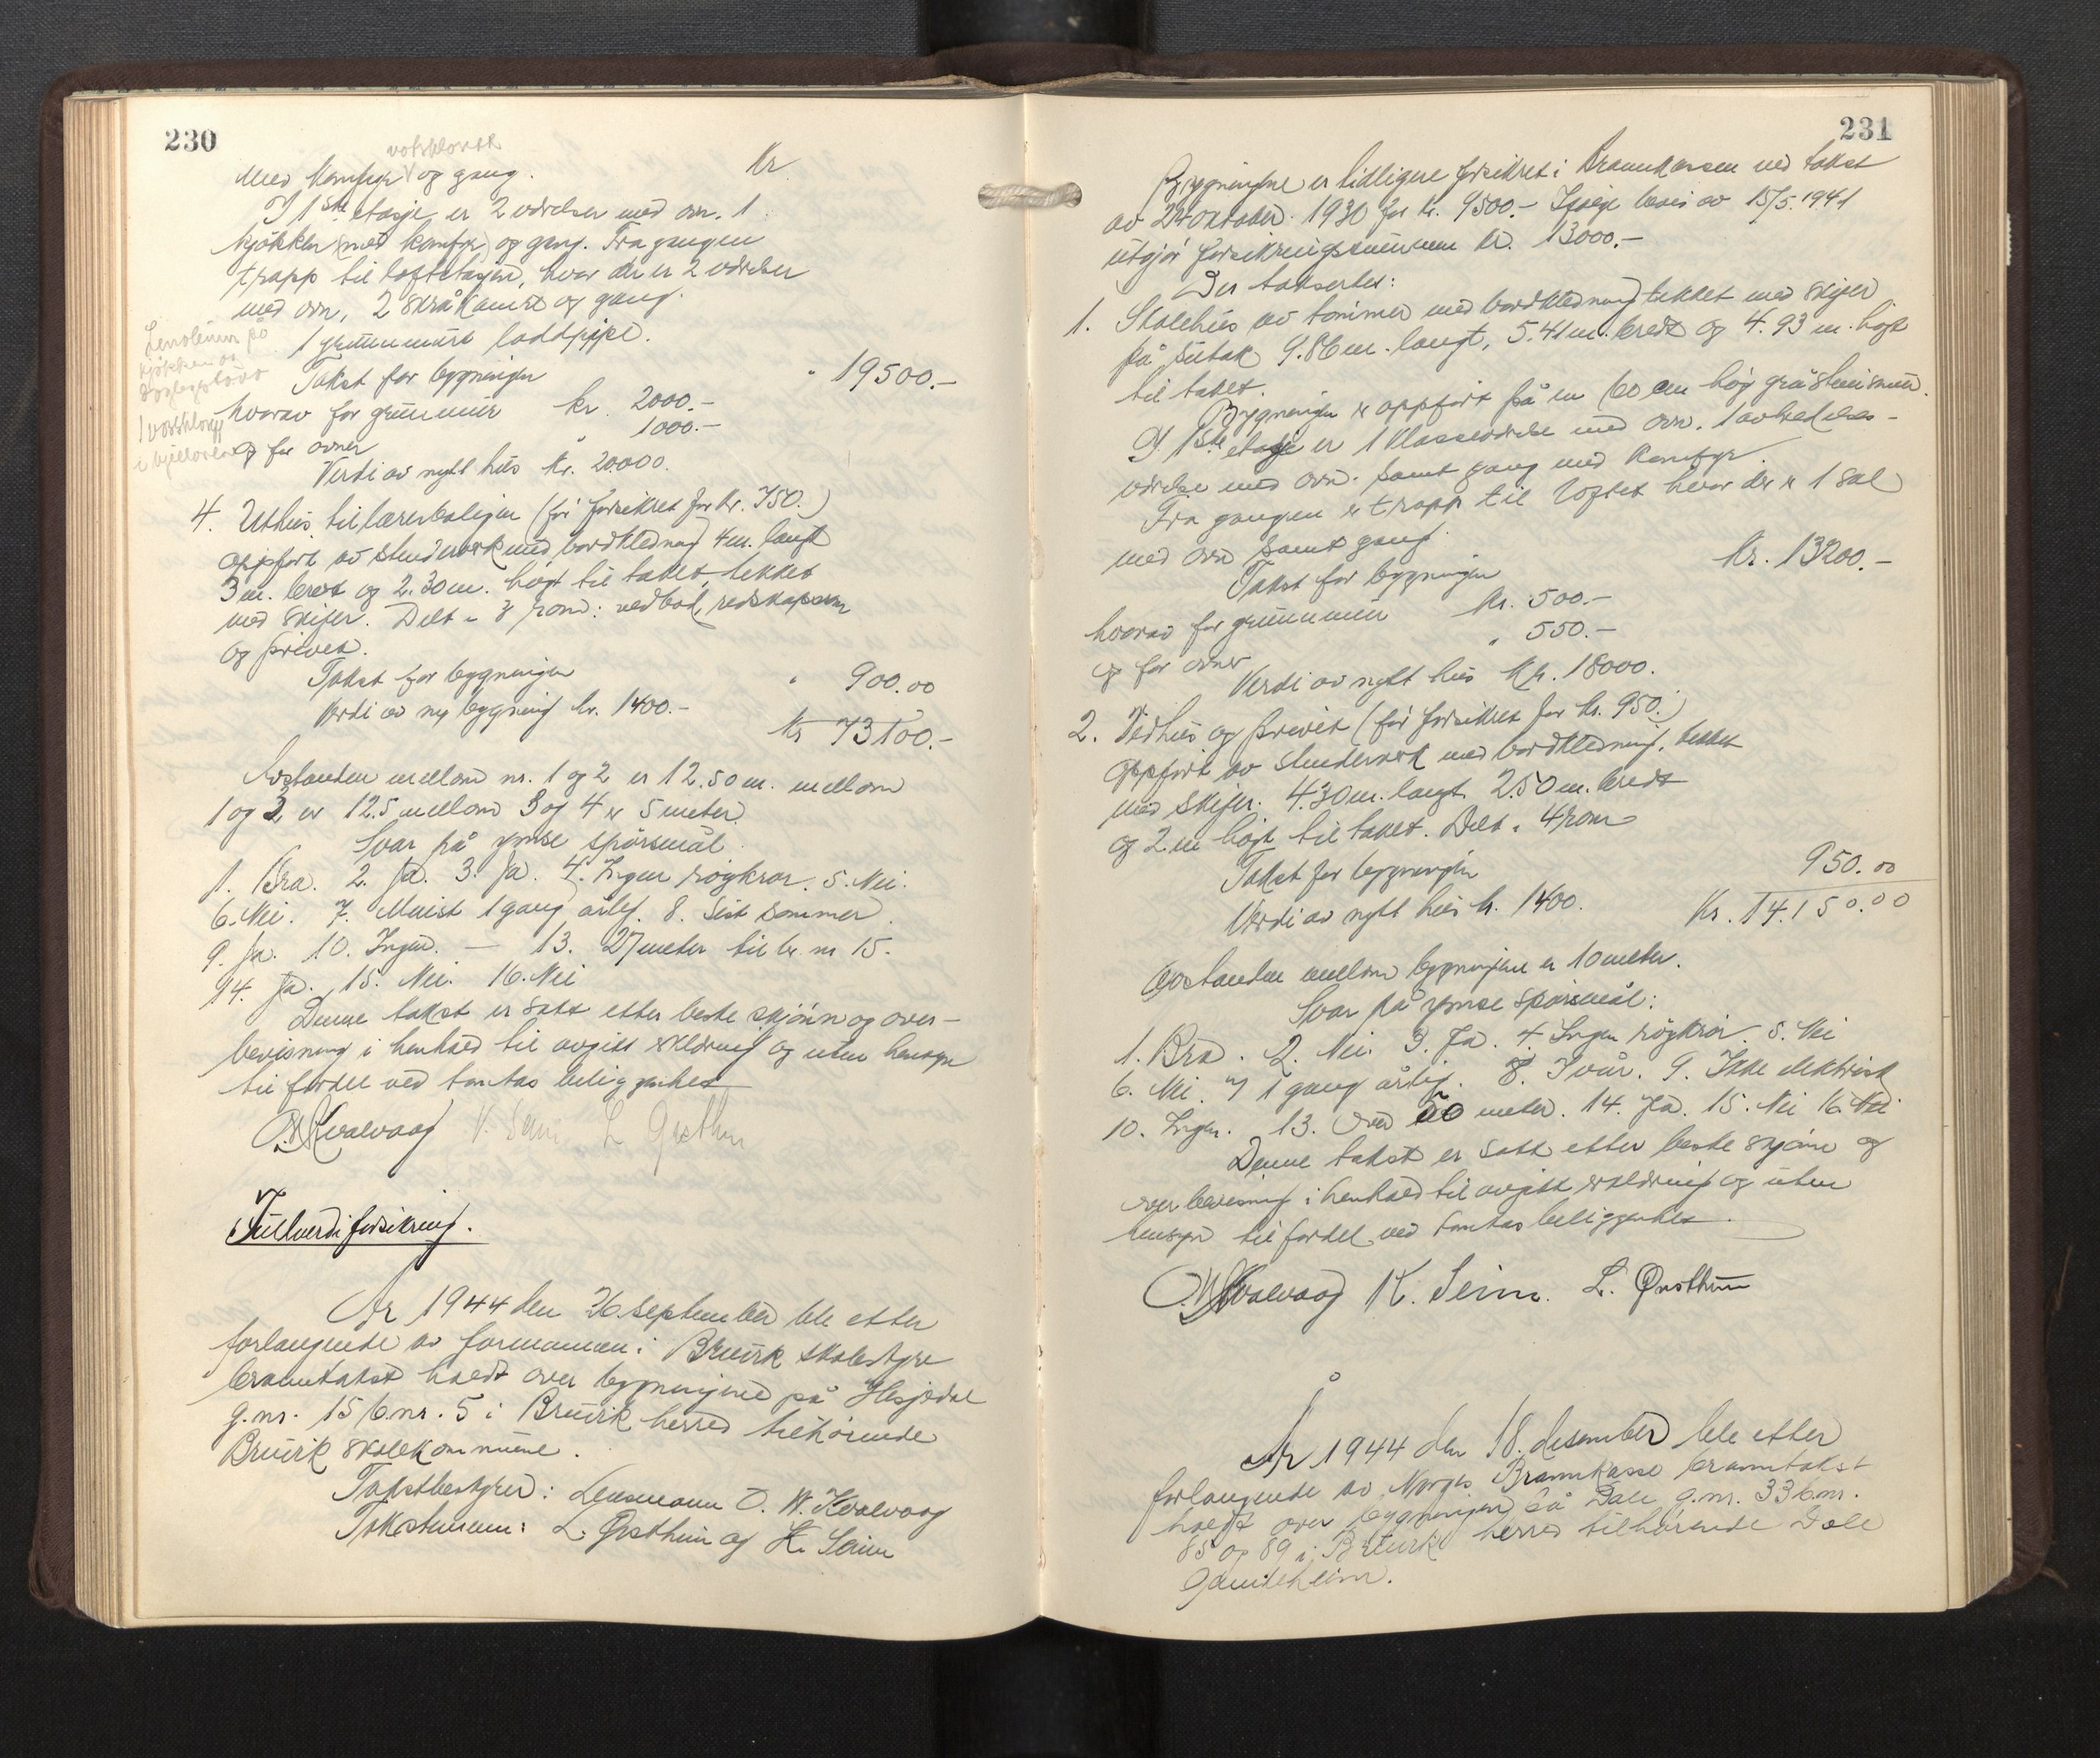 230
vaskeloved
med komfyr og gang. Kr.
I 1ste etasje er 2 værelser med ovn. 1
kjøkken med komfyr og gang. Fra gangen
trapp til loftetasjen, hvor der er 2 værelser
med ovn, 2 skråkamre og gang.
1 grunnmurt loddpipe.
Linoleum på
kjøkken og
Takst for bygningen " 19500.-
hvorav for grunnmur kr. 2000.-
og for ovner " 1000.-
Verdi av nytt hus kr. 20.000.
4. Uthus til lærerboligen (før forsikret for kr. 750.)
oppført av stenderverk med bordkledning 4 m. langt
3 m. bredt og 2.30 m. høgt til taket, tekket
med skifer. Delt i 3 rom: vedbod, redskapsrom
og privet.
Takst for bygningen " 900.00
Verdi av ny bygning kr. 1400.-
Kr 73100.-
Avstanden mellom nr. 1 og 2 er 12.50 m. mellom
1 og 3 er 12.5 mellom 3 og 4 er 5 meter.
Svar på ymse spørsmål.
1. Bra. 2. Ja. 3. Ja. 4. Ingen røykrør. 5. Nei.
6. Nei. 7. Minst 1 gang årleg. 8. Sist sommer.
9. Ja. 10. Ingen. — 13. 27 meter til br. nr 15.
14. Ja. 15. Nei. 16. Nei
Denne takst er satt etter beste skjønn og over-
bevisning i henhold til avgitt erklæring og uten hensyn
til fordel ved tomtas beliggenhet
O.W. Kvalvaag K. Seim L Østhun
Fullverdiforsikring.
År 1944 den 26. september ble etter
forlangende av formannen i Bruvik skolestyre
branntakst holdt over bygningene på Hesjedal
g.nr. 15 b.nr. 5 i Bruvik herred tilhørende
Bruvik skolekommune.
Takstbestyrer: Lensmann O. W. Kvalvaag
Takstmenn: L. Østhun og K. Seim
231
Bygningene er tidligere forsikret i Brannkassen ved takst
av 24 oktober 1930 for kr. 9500.- Ifølge bevis av 15/5.1941
utgjør forsikringssummen kr. 13000.-
Der takseres:
1. Skolehus av tømmer med bordkledning tekket med skifer
på sutak 9.86 m. langt, 5.41 m. bredt og 4.93 m. høgt
til taket.
Bygningen er oppført på en 60 cm høg gråsteinsmur.
I 1ste etasje er 1 klasseværelse med ovn. 1 avkledes-
værelse med ovn. samt gang med komfyr.
Fra gangen er trapp til loftet hvor der er 1 sal
med ovn samt gang.
Takst for bygningen Kr. 13200.-
hvorav for grunnmur kr. 500.-
og for ovner " 550.-
Verdi av nytt hus Kr. 18000.
2. Vedhus og privet (før forsikret for kr. 950.)
oppført av stenderverk med bordkledning, tekket
med skifer. 4.30 m. langt. 2.50 m. bredt
og 2 m høgt til taket. Delt i 4 rom
Takst for bygningen 950.00
Verdi av nytt hus kr. 1400. Kr. 14.150.00
Avstanden mellom bygningene er 10 meter.
Svar på ymse spørsmål:
1. Bra. 2. Nei. 3. Ja. 4. Ingen røykrør. 5. Nei
6. Nei. 7 1 gang årleg. 8. I vår. 9. Ikke elektrisk
10. Ingen. 13. Over 20 meter. 14. Ja. 15. Nei 16. Nei
Denne takst er satt etter beste skjønn og
overbevisning i henhold til avgitt erklæring og uten
hensyn til fordel ved tomtas beliggenhet.
O.W. Kvalvaag K. Seim. L. Østhun
År 1944 den 18. desember ble etter
forlangende av Norges Brannkasse branntakst
holdt over bygningen på Dale g.nr. 33 b.nr.
85 og 89 i Bruvik herred tilhørende Dale
Gamleheim.